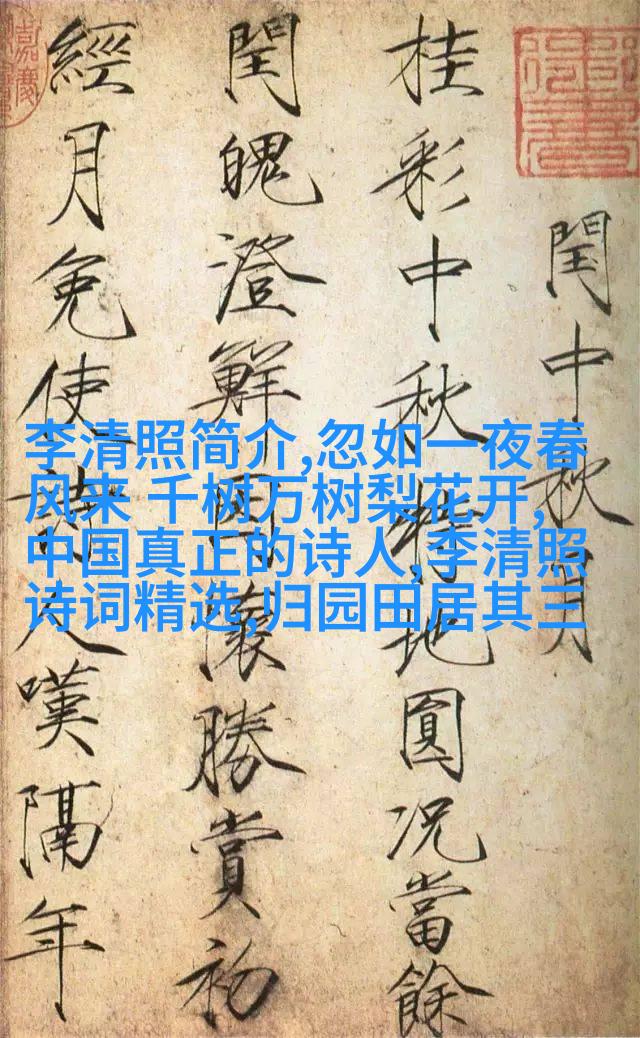 閏中秋月
桂彩中秋特地圓況當餘
閏魄澄鮮因懷勝賞初
經月免使詩人嘆隔年
李清照简介,忽如一夜春
风来 千树万树梨花开,
中国真正的诗人,李清照
诗词精选,归园田居其三